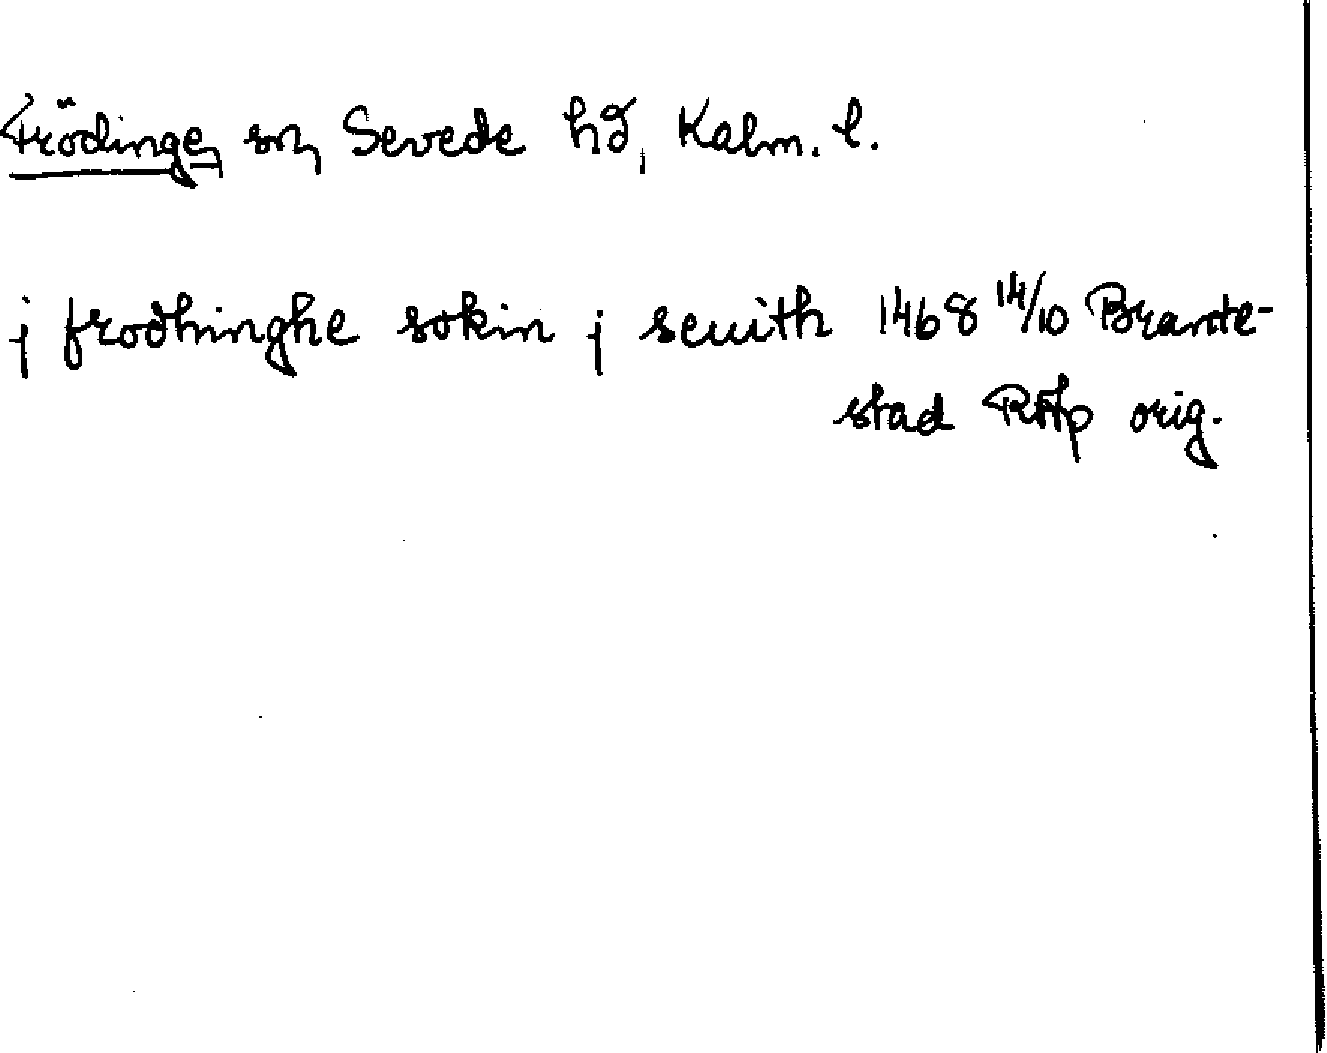 Frödinge, sn, Sevede hd, Kalm. l.
j frodhinghe sokin j seuith 1468 14/10 Brante-
stad RAp orig.